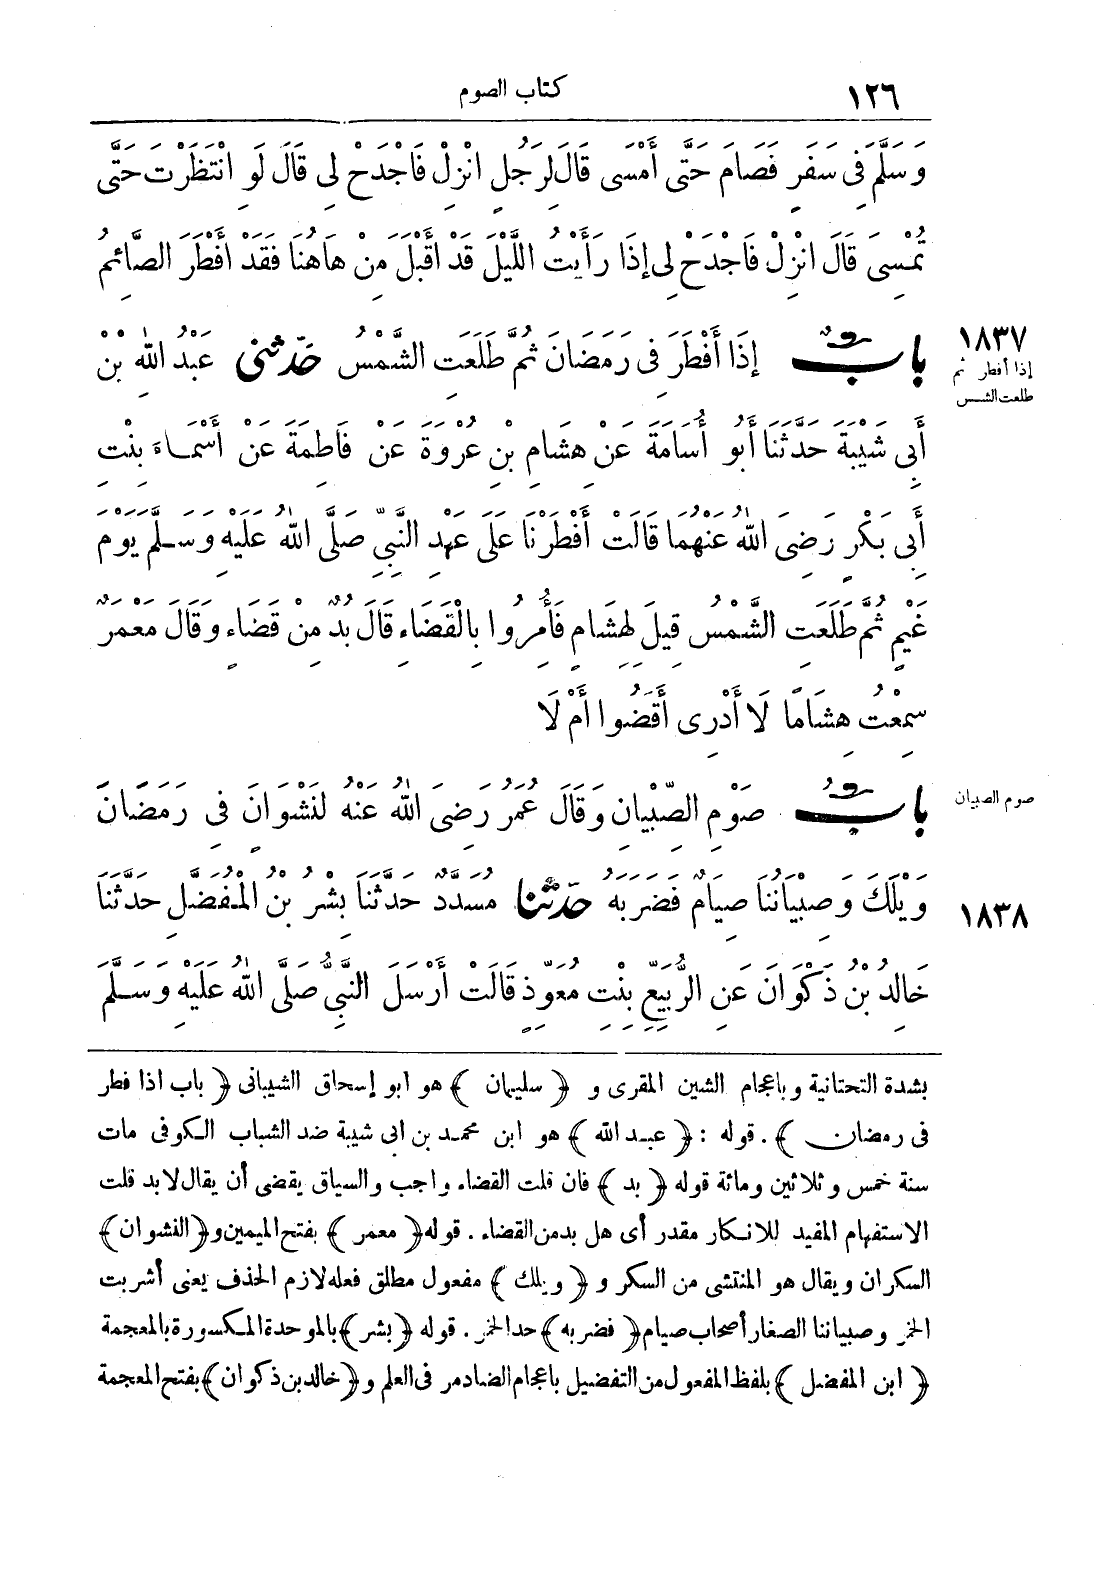 ١٢٦ كتاب الصوم
وَسَلَّمَ فِى سَفَرٍ فَصَامَ حَتَّى أَمْسَى قَالَ لِرَجُلٍ انْزِلْ فَاجْدَحْ لِى قَالَ لَوِ انْتَظَرْتَ حَتَّى
تُمْسِىَ قَالَ انْزِلْ فَاجْدَحْ لِى إِذَا رَأَيْتَ اللَّيْلَ قَدْ أَقْبَلَ مِنْ هَاهُنَا فَقَدْ أَفْطَرَ الصَّائِمُ
١٨٣٧
إذا أفطر ثم
طلعت الشمس
بابٌ إِذَا أَفْطَرَ فِى رَمَضَانَ ثُمَّ طَلَعَتِ الشَّمْسُ حَدَّثَنِى عَبْدُ اللهِ بْنُ
أَبِى شَيْبَةَ حَدَّثَنَا أَبُو أُسَامَةَ عَنْ هِشَامِ بْنِ عُرْوَةَ عَنْ فَاطِمَةَ عَنْ أَسْمَاءَ بِنْتِ
أَبِى بَكْرٍ رَضِىَ اللهُ عَنْهُمَا قَالَتْ أَفْطَرْنَا عَلَى عَهْدِ النَّبِىِّ صَلَّى اللهُ عَلَيْهِ وَسَلَّمَ يَوْمَ
غَيْمٍ ثُمَّ طَلَعَتِ الشَّمْسُ قِيلَ لِهِشَامٍ فَأُمِرُوا بِالْقَضَاءِ قَالَ بُدٌّ مِنْ قَضَاءٍ وَقَالَ مَعْمَرٌ
سَمِعْتُ هِشَامًا لَا أَدْرِى أَقَضَوْا أَمْ لَا
صوم الصبيان
بابُ صَوْمِ الصِّبْيَانِ وَقَالَ عُمَرُ رَضِىَ اللهُ عَنْهُ لِنَشْوَانَ فِى رَمَضَانَ
وَيْلَكَ وَصِبْيَانُنَا صِيَامٌ فَضَرَبَهُ حَدَّثَنَا مُسَدَّدٌ حَدَّثَنَا بِشْرُ بْنُ الْمُفَضَّلِ حَدَّثَنَا
١٨٣٨
خَالِدُ بْنُ ذَكْوَانَ عَنِ الرُّبَيِّعِ بِنْتِ مُعَوِّذٍ قَالَتْ أَرْسَلَ النَّبِىُّ صَلَّى اللهُ عَلَيْهِ وَسَلَّمَ
بشدة التحتانية وباعجام الشين المقرى و ﴿ سليمان ﴾ هو ابو إسحاق الشيبانى ﴿ باب اذا فطر
فى رمضان ﴾ . قوله : ﴿ عبد الله ﴾ هو ابن محمد بن ابى شيبة ضد الشباب الكوفى مات
سنة خمس وثلاثين ومائة قوله ﴿ بد ﴾ فان قلت القضاء واجب والسياق يقضى أن يقال لابد قلت
الاستفهام المفيد للانكار مقدر أى هل بد من القضاء . قوله ﴿ معمر ﴾ بفتح الميمين و﴿ النشوان ﴾
السكران ويقال هو المنتشى من السكر و ﴿ ويلك ﴾ مفعول مطلق فعله لازم الحذف يعنى أشربت
الخمر وصبياننا الصغار أصحاب صيام ﴿ فضربه ﴾ حد الخمر . قوله ﴿ بشر ﴾ بالموحدة المكسورة بالمعجمة
﴿ ابن المفضل ﴾ بلفظ المفعول من التفضيل باعجام الضاد مر فى العلم و﴿ خالد بن ذكوان ﴾ بفتح المعجمة